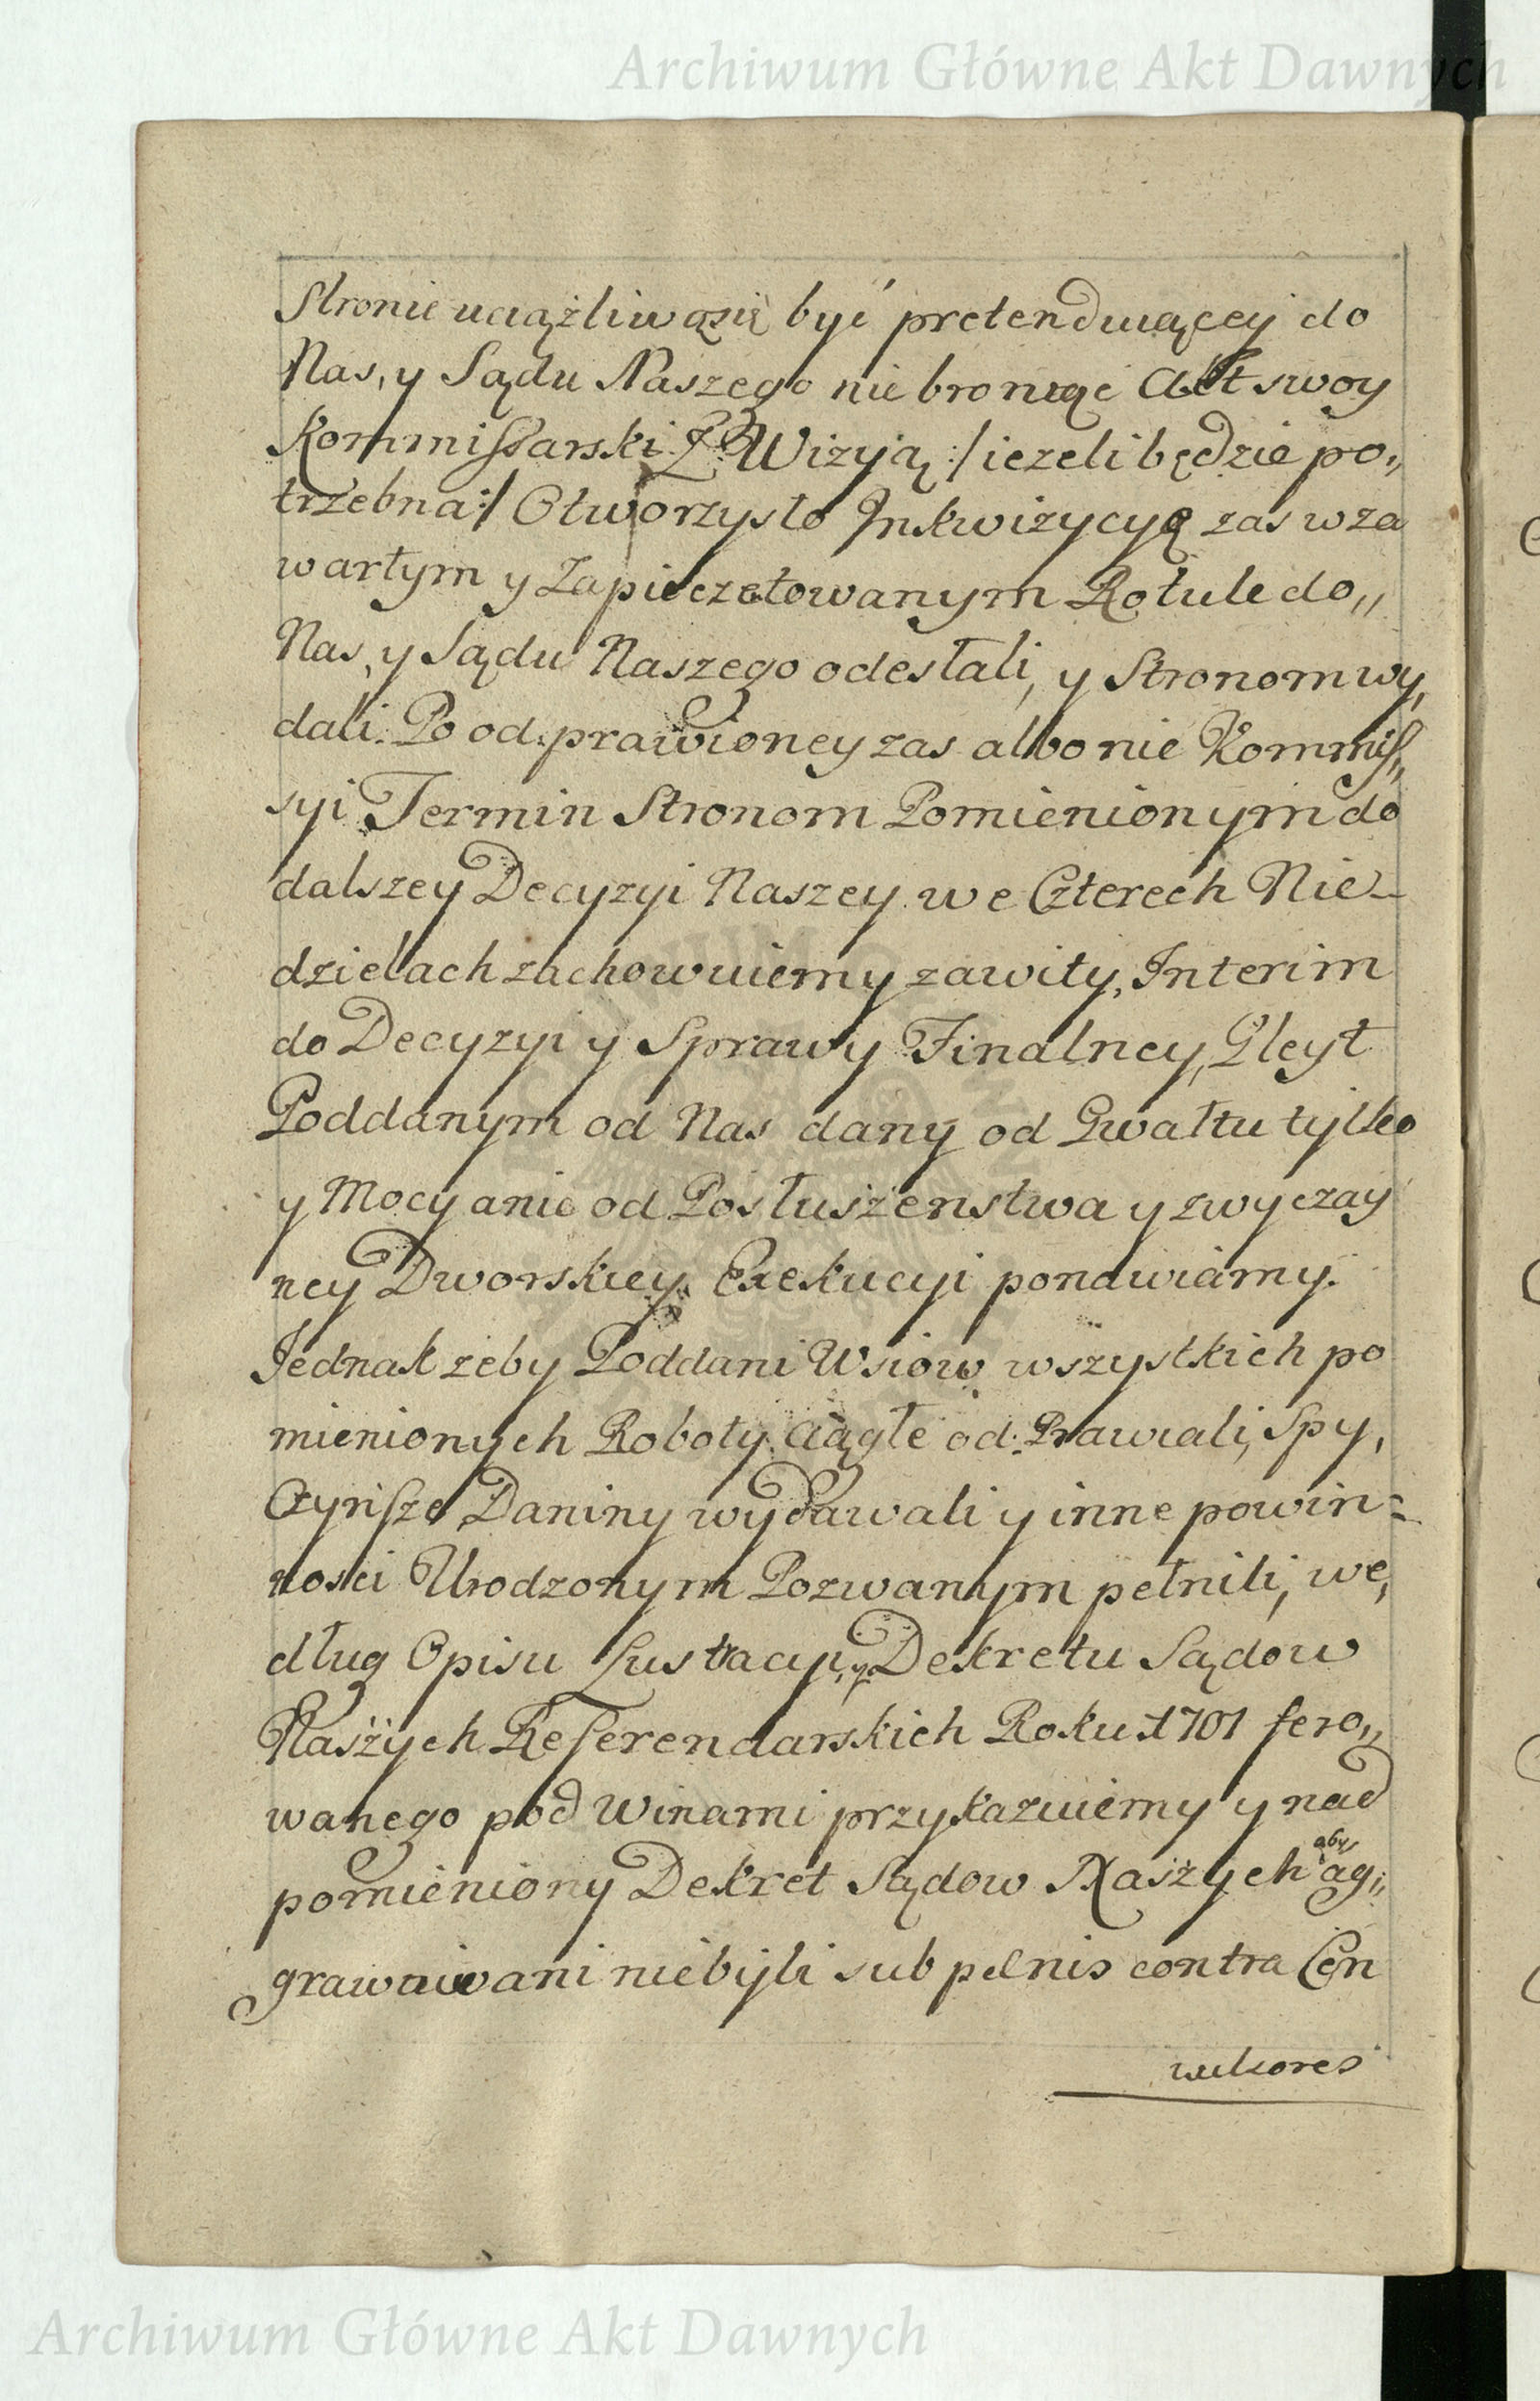 Archiwum Główne Akt Dawnych
Stronie uciążliwą się być pretenduiącey do
Nas, y Sądu Naszego nie broniąc Akt swoy
Kommissarski Z Wizyią :/ ieżeli będzie po„
trzebna :/ Otworzysto Inkwizycyę zas w za
wartym y Zapieczętowanym Rotule do„
Nas, y Sądu Naszego odesłali, y Stronom wy,
dali. Po od prawioney zas albo nie Kommis„
syi Termin Stronom Pomienionym do
dalszey Decyzyi Naszey we Czterech Nie-
dzielach zachowuiemy zawity, Interim
do Decyzyi y Sprawy Finalney, Gleyt
Poddanym od Nas dany od Gwałtu tylko
y Mocy a nie od Posłuszenstwa y zwyczay
ney Dworskiey Exekucyi ponawiamy.
Jednak zeby Poddani Wsiow wszystkich po
mienionych Roboty Ciągłe od Prawiali, Spy,
Czynsze Daniny wydawali y inne powin=
nosci Urodzonym Pozwanym pełnili, we,
dług Opisu Lustracyi, y Dekretu Sądow
Naszych Referendarskich Roku 1701 fero„
wanego pod Winami przykazuiemy y nad
pomieniony Dekret Sądow Naszych aby ag„
grawowani nie byli sub pænis contra Con
vulsores
Archiwum Główne Akt Dawnych